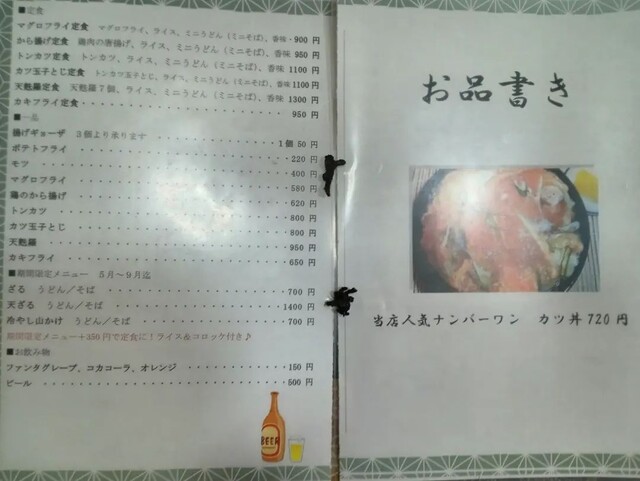 ■定食
マグロフライ定食 マグロフライ、ライス、ミニうどん（ミニそば）、香味・900 円
から揚げ定食 鶏肉の唐揚げ、ライス、ミニうどん（ミニそば）、香味 950 円
トンカツ定食 トンカツ、ライス、ミニうどん（ミニそば）、香味 1100 円
カツ玉子とじ定食 トンカツ玉子とじ、ライス、ミニうどん（ミニそば）、香味 1100円
天麩羅定食 天麩羅7個、ライス、ミニうどん（ミニそば）、香味 1300 円
カキフライ定食 950 円
■一品
揚げギョーザ 3個より承ります 1個 50 円
ポテトフライ 220 円
モツ 400 円
マグロフライ 580 円
鶏のから揚げ 620 円
トンカツ 800 円
カツ玉子とじ 800 円
天麩羅 950 円
カキフライ 650 円
■期間限定メニュー 5月～9月迄
ざる うどん／そば 700 円
天ざる うどん／そば 1400 円
冷やし山かけ うどん／そば 700 円
期間限定メニュー＋350円で定食に！ライス＆コロッケ付き♪
■お飲み物
ファンタグレープ、コカコーラ、オレンジ 150 円
ビール 500 円
BEER
お品書き
当店人気ナンバーワン カツ丼 720 円